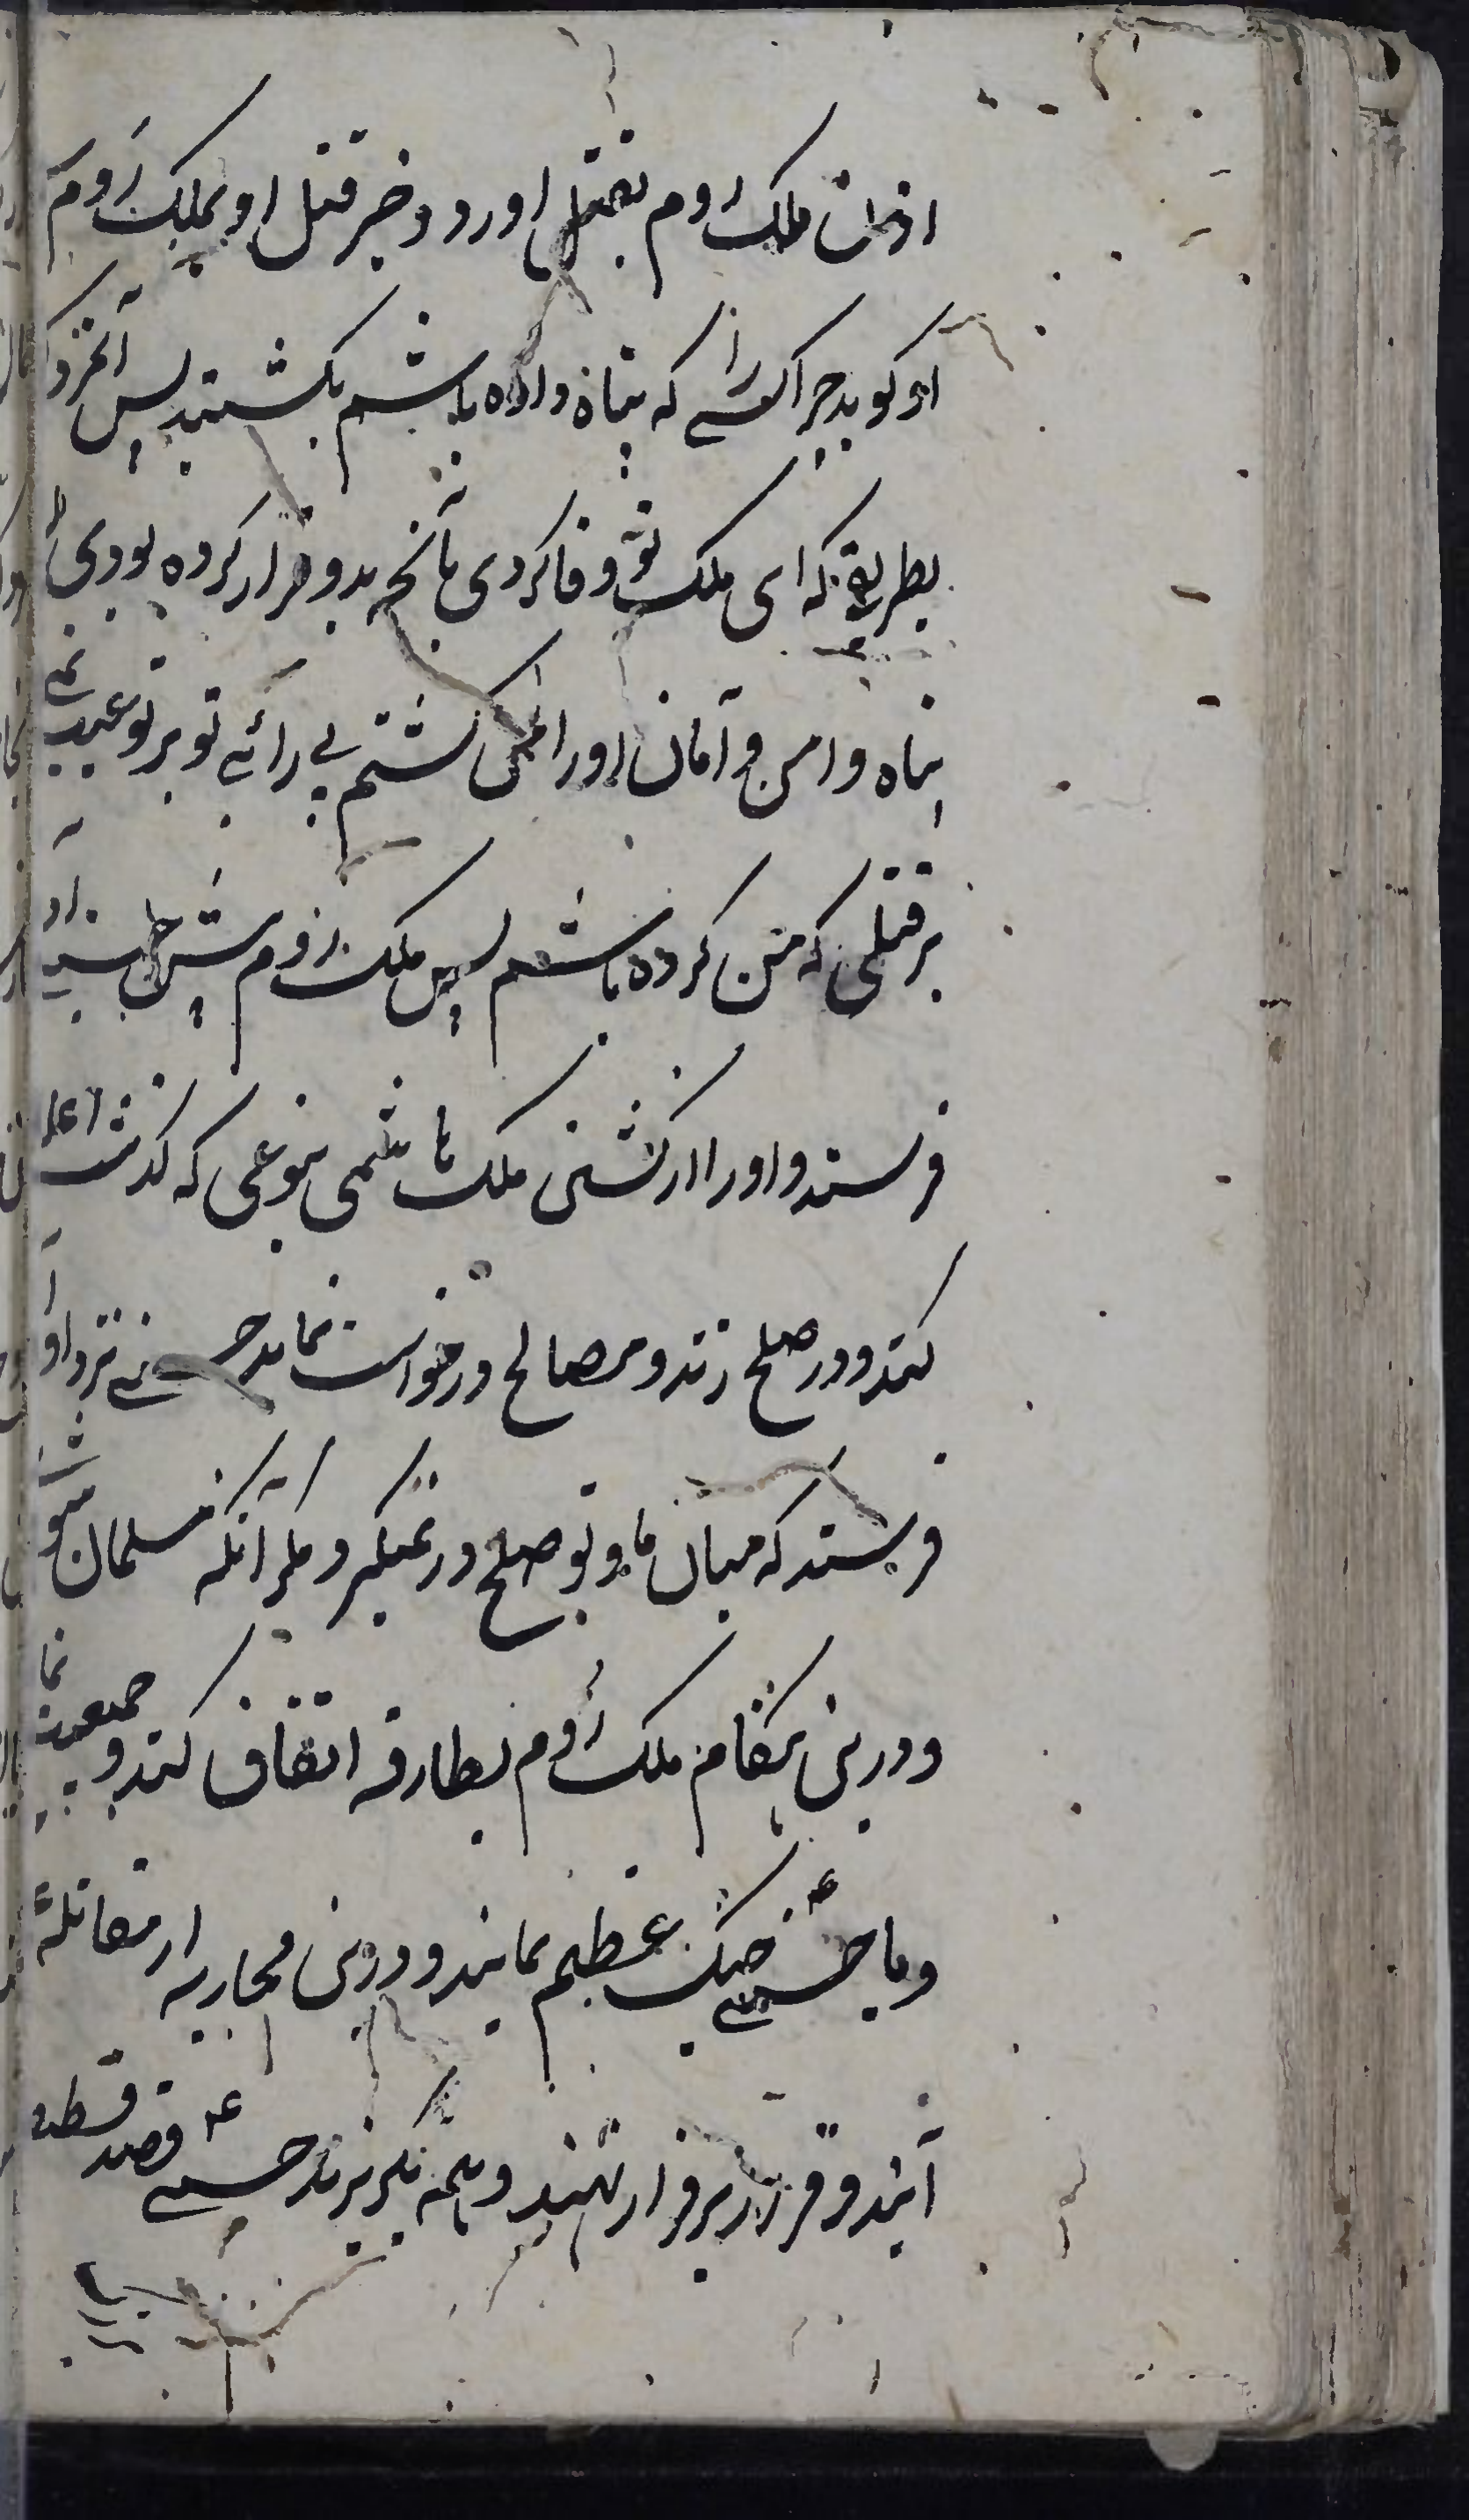 اذن ملک روم بقتل اورد و خبر قتل او بملک روم
او کوید چرا کسی را که پناه داده باشم بکشتید پس آنخرد
بطریقی که ای ملک تو وفا کردی بآنچه بدو قرار کرده بودی
پناه و امن و آمان او را من کشتم بی رائے تو بر تو عیب نے
بر قتلی که من کرده باشم پس ملک روم پیش حسنی
فرستد و او را از کشتن ملک هاشمی بنوعی که گذشت اعلا
کند و در صلح زند و مصالح درخواست نماید حسنے نزد او
فرستد که میان ما و تو صلح در نمیگیرد مگر آنکه مسلمان شو
و درین مقام ملک روم بطارقه اتفاق کند و جمعیت نما
و با حسنے جنک عظیم نمایند و درین محاربه از مقاتله
آیند و قرار بر فرار نهند و همه بگریزند حسنے قصد قسطه